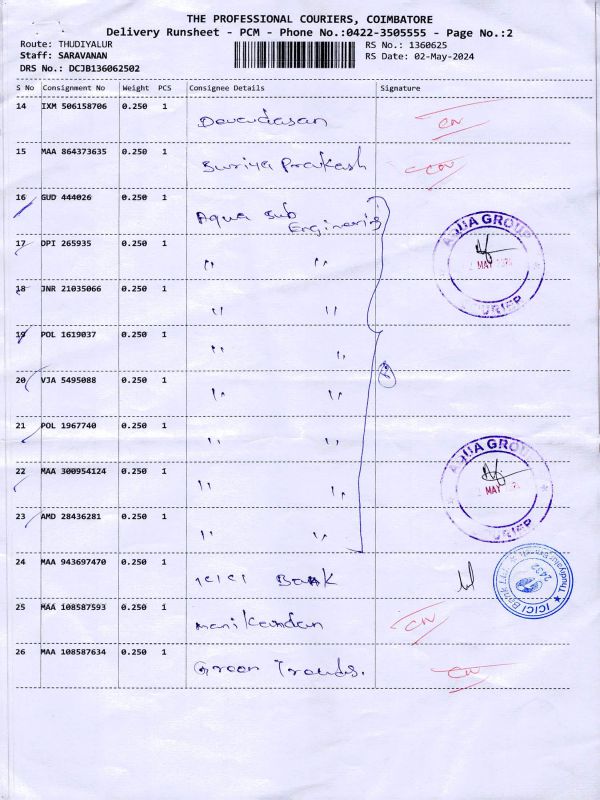 THE PROFESSIONAL COURIERS, COIMBATORE
Delivery Runsheet - PCM - Phone No.:0422-3505555 - Page No.:2
Route: THUDIYALUR
RS No.: 1360625
Staff: SARAVANAN
RS Date: 02-May-2024
DRS No.: DCJB136062502
S No Consignment No Weight PCS Consignee Details Signature
14 IXM 506158706 0.250 1 Devadasan
15 MAA 864373635 0.250 1 Suriya Prakash
16 GUD 444026 0.250 1 Aqua Sub Engineering
17 DPI 265935 0.250 1 " "
AQUA GROUP
MAY
COURIER
18 JNR 21035066 0.250 1 " "
19 POL 1619037 0.250 1 " "
20 VJA 5495088 0.250 1 " " 8
21 POL 1967740 0.250 1 " "
22 MAA 300954124 0.250 1 " "
AQUA GROUP
MAY
COURIER
23 AMD 28436281 0.250 1 " "
24 MAA 943697470 0.250 1 ICICI BANK
ICICI BANK LTD Thudiyalur Branch
2432
25 MAA 108587593 0.250 1 manikandan
26 MAA 108587634 0.250 1 Green Trends.